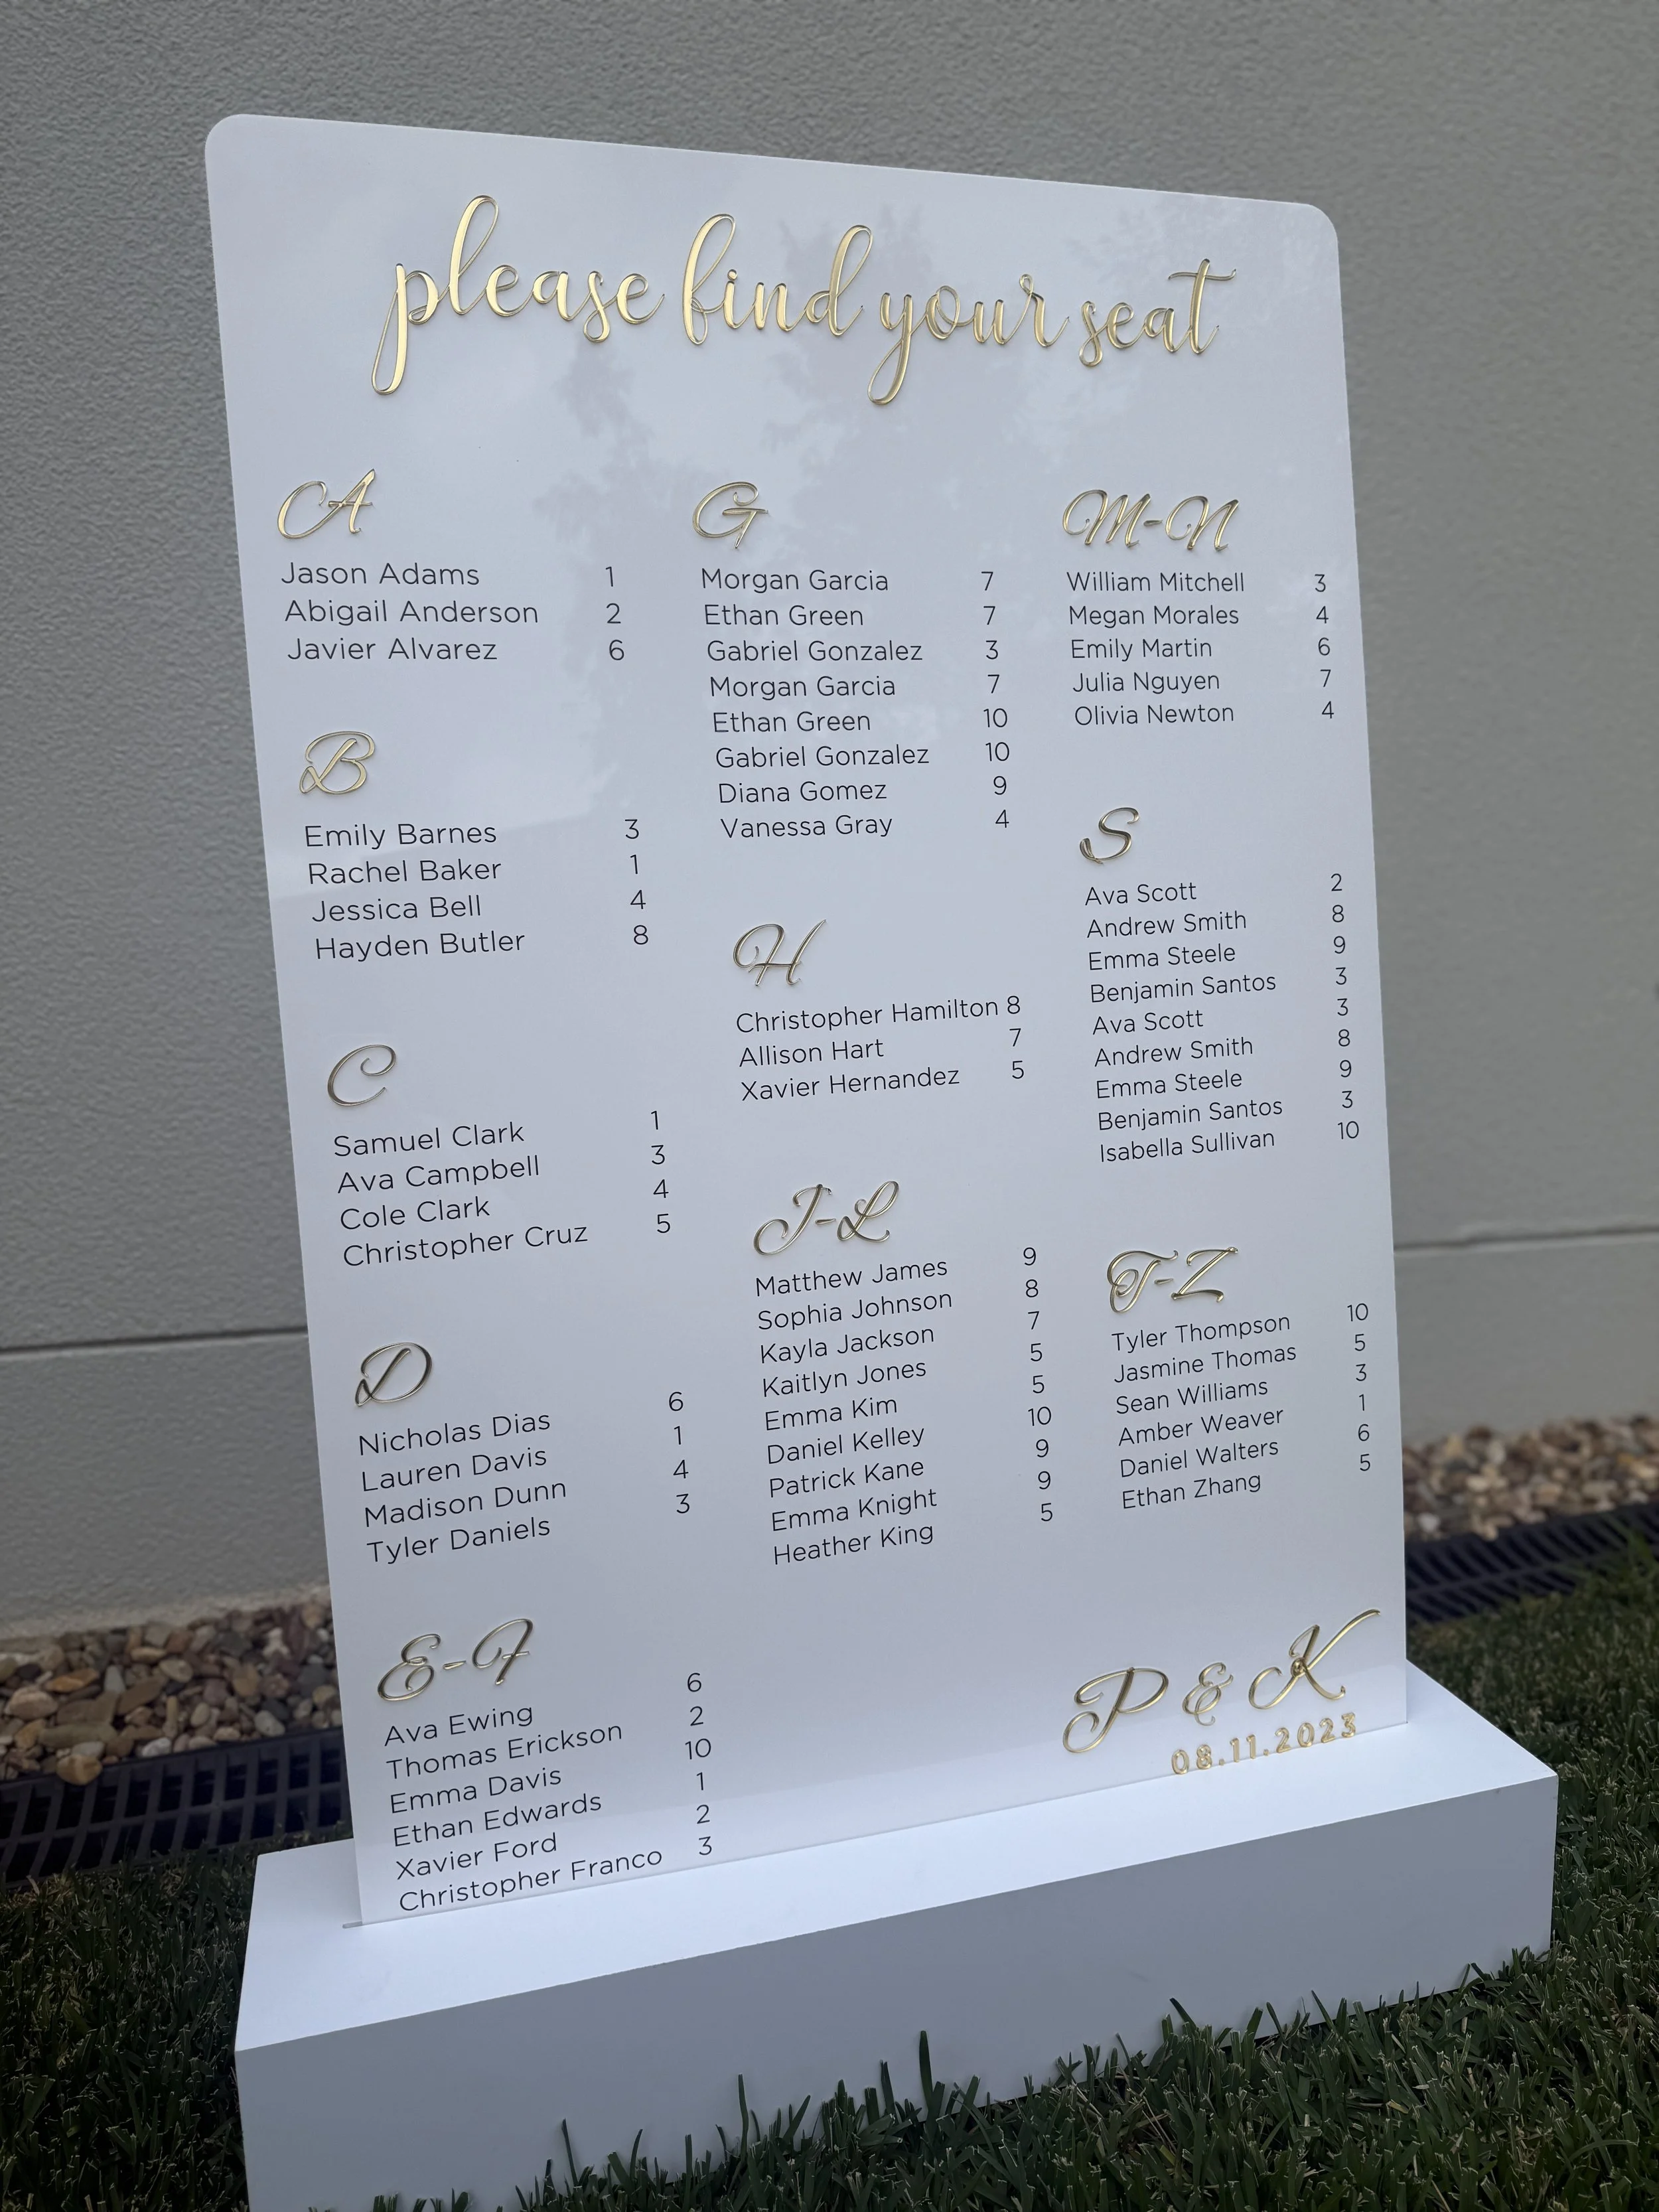 please find your seat
A
Jason Adams 1
Abigail Anderson 2
Javier Alvarez 6
B
Emily Barnes 3
Rachel Baker 1
Jessica Bell 4
Hayden Butler 8
C
Samuel Clark 1
Ava Campbell 3
Cole Clark 4
Christopher Cruz 5
D
Nicholas Dias 6
Lauren Davis 1
Madison Dunn 4
Tyler Daniels 3
E-F
Ava Ewing 6
Thomas Erickson 2
Emma Davis 10
Ethan Edwards 1
Xavier Ford 2
Christopher Franco 3
G
Morgan Garcia 7
Ethan Green 7
Gabriel Gonzalez 3
Morgan Garcia 7
Ethan Green 10
Gabriel Gonzalez 10
Diana Gomez 9
Vanessa Gray 4
H
Christopher Hamilton 8
Allison Hart 7
Xavier Hernandez 5
J-L
Matthew James 9
Sophia Johnson 8
Kayla Jackson 7
Kaitlyn Jones 5
Emma Kim 5
Daniel Kelley 10
Patrick Kane 9
Emma Knight 9
Heather King 5
M-N
William Mitchell 3
Megan Morales 4
Emily Martin 6
Julia Nguyen 7
Olivia Newton 4
S
Ava Scott 2
Andrew Smith 8
Emma Steele 9
Benjamin Santos 3
Ava Scott 3
Andrew Smith 8
Emma Steele 9
Benjamin Santos 3
Isabella Sullivan 10
T-Z
Tyler Thompson 10
Jasmine Thomas 5
Sean Williams 3
Amber Weaver 1
Daniel Walters 6
Ethan Zhang 5
P & K
08.11.2023